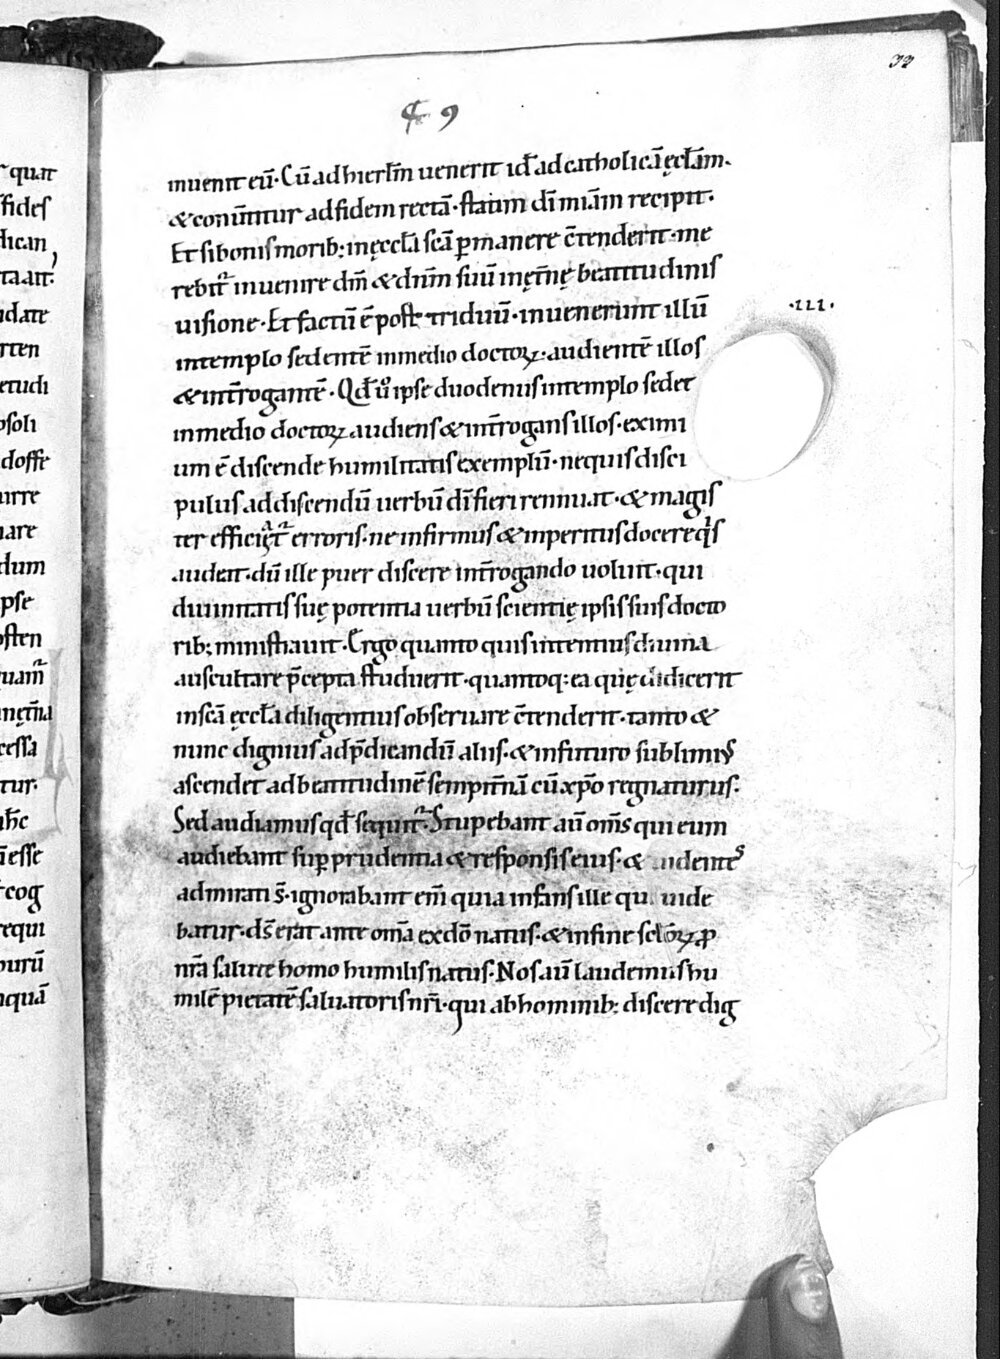 32
9
inuenit eū· Cū ad hierłm uenerit id ÷ ad catholicā ęcłam·
& conūtitur ad fidem rectā· statim dī miām recipit·
Et si bonis morib; in ęccła scā pmanere c̄tenderit· me
rebit᷑ inuenire dm̄ & dn̄m suū in ęt̄nę beatitudinis
uisione· Et factū ē post triduū· inuenerunt illū
·III·
in templo sedentē in medio doctoꝝ· audientē illos
& int̄rogantē· Qđ u͛o ipse duodenus in templo sedet
in medio doctoꝝ audiens & int̄rogans illos· eximi
um ē discende humilitatis exemplū· ne quis disci
pulus ad discendū uerbū dī fieri rennuat· & magis
ter efficiat᷑ erroris· ne infirmus & inperitus docere q's
audeat· dū ille puer discere int̄rogando uoluit· qui
diuinitatis suę potentia uerbū scientię ipsis suis docto
rib; ministrauit· Ergo quanto quis intentius diuina
auscultare p̄cepta studuerit· quantoq; ea quę didicerit
in scā ęccła diligentius obseruare c̄tenderit· tanto &
nunc dignius ad p̄dicandū aliis· & in futuro sublimius
ascendet ad beatitudinē sempit̄nā cū xp̄o regnaturus·
Sed audiamus qđ sequit᷑· Stupebant aū om̄s qui eum
audiebant sup prudentia & responsis eius· & uidentes
admirati s̄· ignorabant em̄ quia infans ille qui uide
batur· ds̄ erat ante om̄a ex dō natus· & in fine scłoꝝ ꝓ
nr̄a salute homo humilis natus· Nos aū laudemus hu
milē pietatē saluatoris nr̄i· qui ab hominib; discere dig
quat
fides
dican
taat·
idate
rten
etudi
osoli
doffe
urre
nare
dum
pse
osten
uam᷑
in ęt̄na
cessa
tur·
uh̄c
esse
cog
requi
purū
nquā